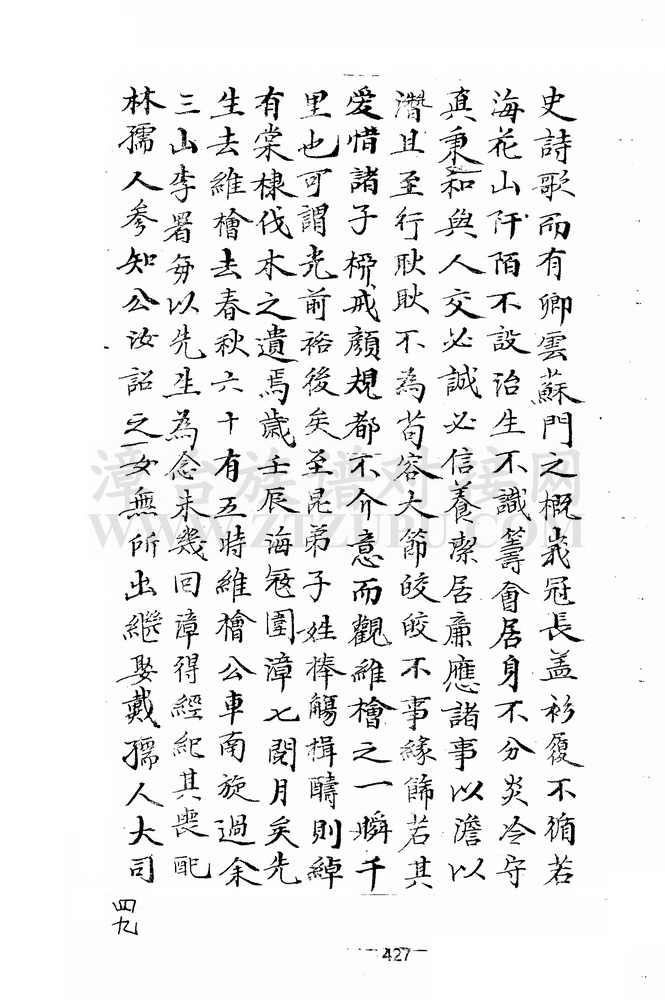 史詩歌而有卿雲蘇門之概峩冠長盖衫履不循若
海花山阡陌不設治生不識籌會居身不分炎冷守
真秉和與人交必誠必信養潔居廉應諸事以澹以
潛且至行耿耿不為苟容大節皎皎不事緣飾若其
愛惜諸子戒顏規都不介意而觀維檜之一瞬千
里也可謂光前裕後矣至昆弟子姓棒觴楫醻則綽
有棠棣伐木之遺焉歲壬辰海寇圍漳七閱月矣先
生去維檜去春秋六十有五時維檜公車南旋過余
三山李署每以先生為念未幾回漳得經紀其喪配
林孺人參知公汝詔之女無所出繼娶戴孺人大司
四九
427
漳台族谱对接网
WWW.ZTZUPU.COM